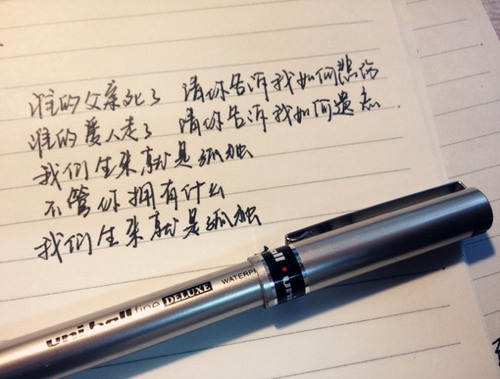 谁的父亲死了 请你告诉我如何悲伤
谁的爱人走了 请你告诉我如何遗忘
我们生来就是孤独
不管你拥有什么
我们生来就是孤独
uni-ball fine DELUXE WATERP
uni